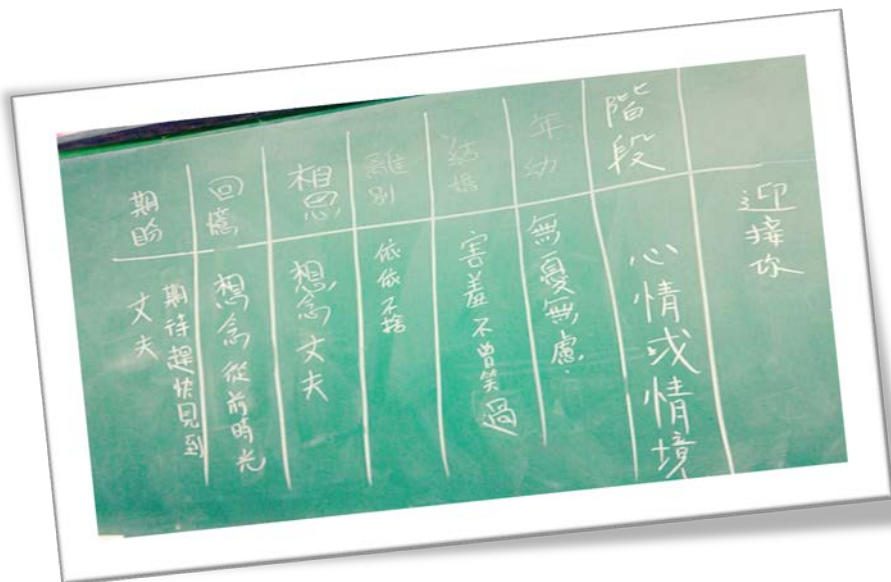 迎接你
階段
心情或情境
年幼
無憂無慮.
結婚
害羞不曾笑過
離別
依依不捨
相思
想念丈夫
回憶
想念從前時光
期盼
期待趕快見到
丈夫